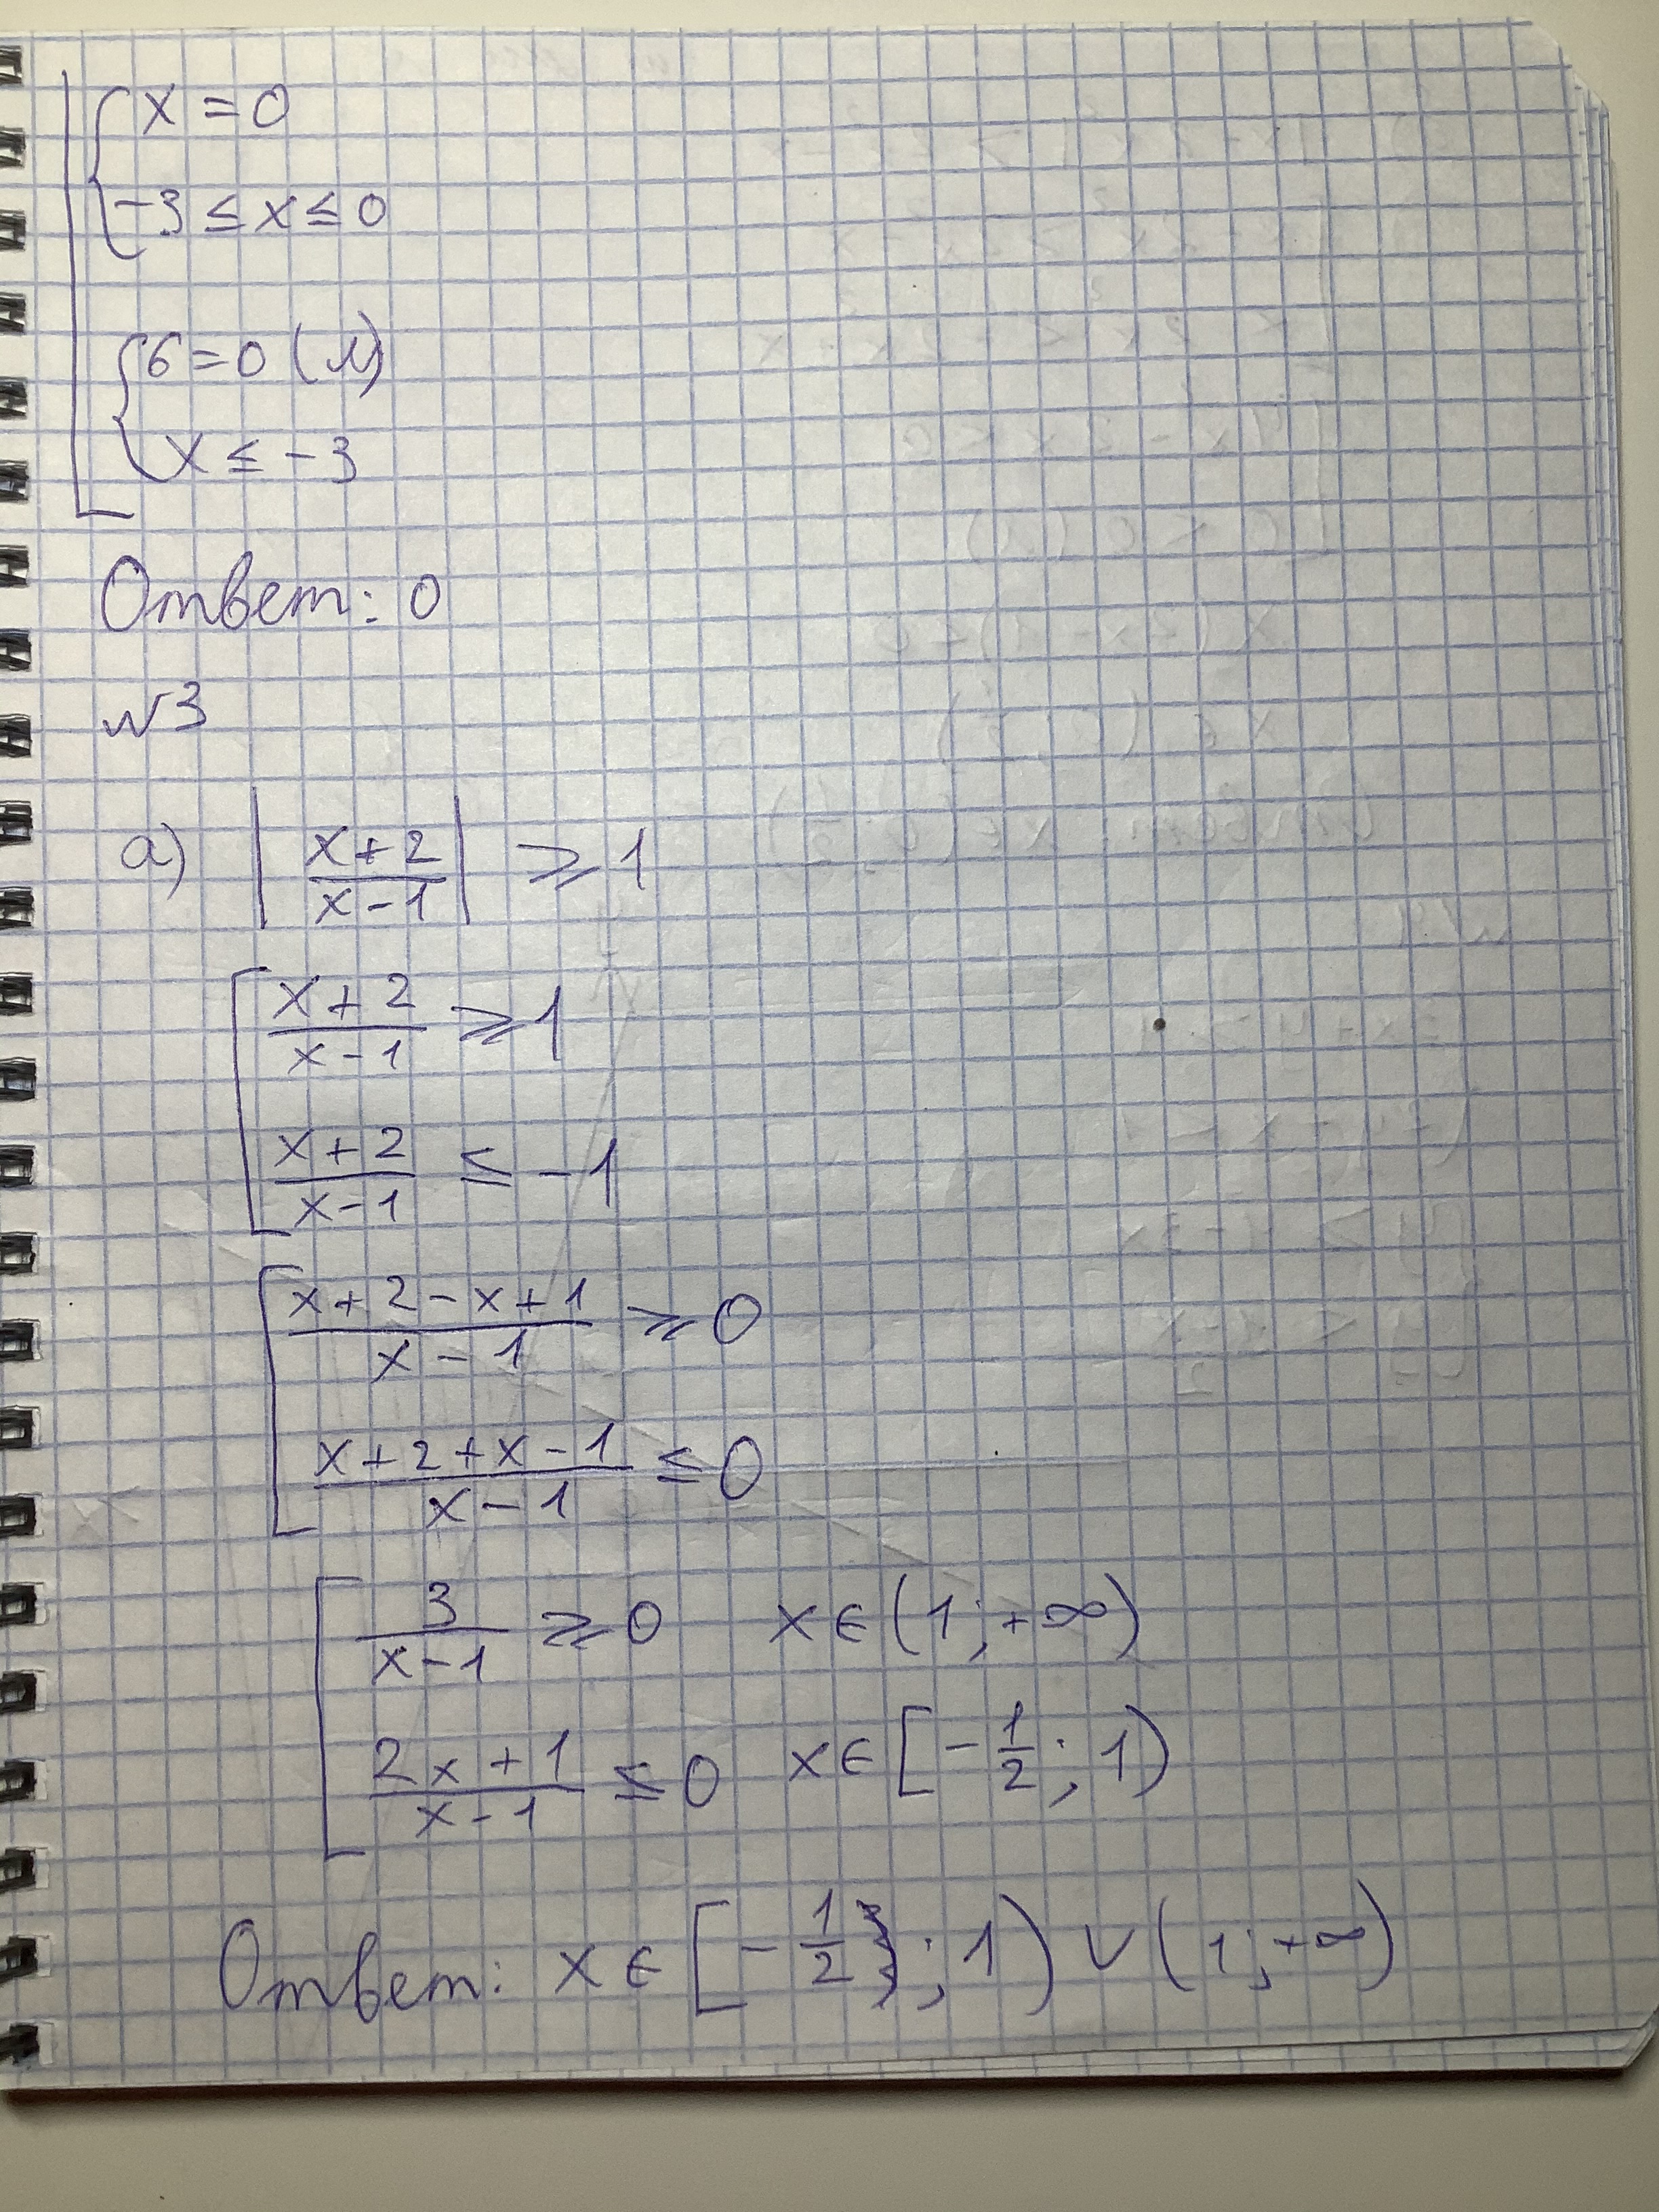 x = 0
-3 ≤ x ≤ 0
6 = 0 (Л)
x ≤ -3
Ответ: 0
№3
а) |(x+2)/(x-1)| ⩾ 1
(x+2)/(x-1) ⩾ 1
(x+2)/(x-1) ≤ -1
(x+2-x+1)/(x-1) ⩾ 0
(x+2+x-1)/(x-1) ≤ 0
3/(x-1) ⩾ 0 x∈(1;+∞)
(2x+1)/(x-1) ≤ 0 x∈[-1/2;1)
Ответ: x∈[-1/2;1)∪(1;+∞)